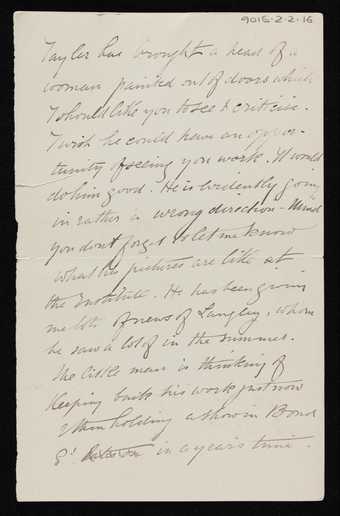 9015-2-2-16
Taylor has brought a head of a
woman painted out of doors which
I should like you to see & criticise.
I wish he could have an oppor-
tunity of seeing you work. It would
do him good. He is evidently going
in rather a wrong direction - Mind
you dont forget to let me know
what his pictures are like at
the Institute. H. has been giving
me lots of news of Langley, whom
he saw a lot of in the summer.
The little man is thinking of
keeping back his work just now
& then holding a show in Bond
St in a year's time.